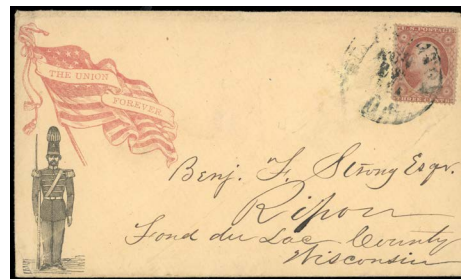 THE UNION
FOREVER
U.S. POSTAGE
THREE CENTS
Benj. F. Strong Esqr.
Ripon
Fond du Lac County
Wisconsin